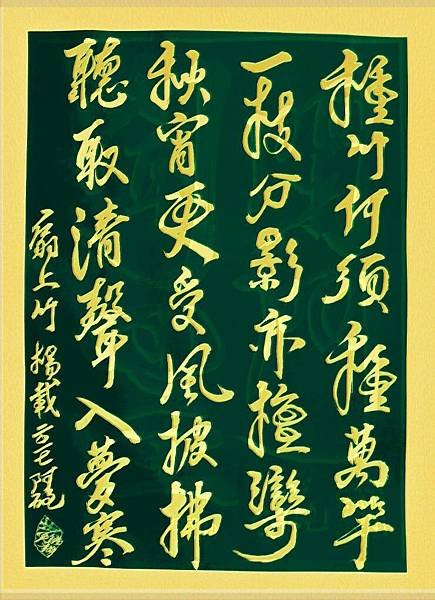 種竹何須種萬竿
一枝分影亦檀欒
秋宵更受風披拂
聽取清聲入夢寒
扇上竹 楊載